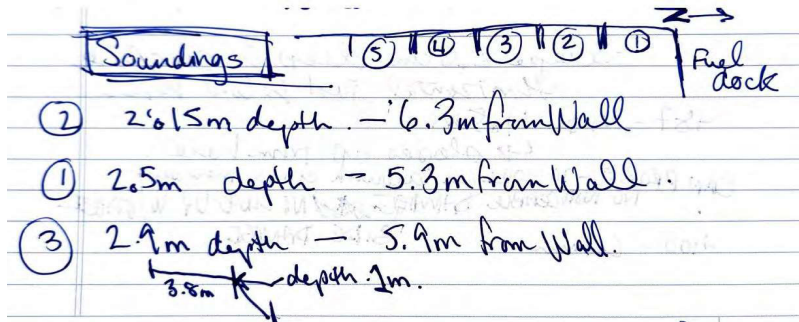 N →
Soundings | ⑤ || ④ || ③ || ② || ① Fuel
dock
② 2.15m depth. - 6.3m from Wall
① 2.5m depth - 5.3m from Wall.
③ 2.9m depth - 5.9m from Wall.
3.8m depth .1m.